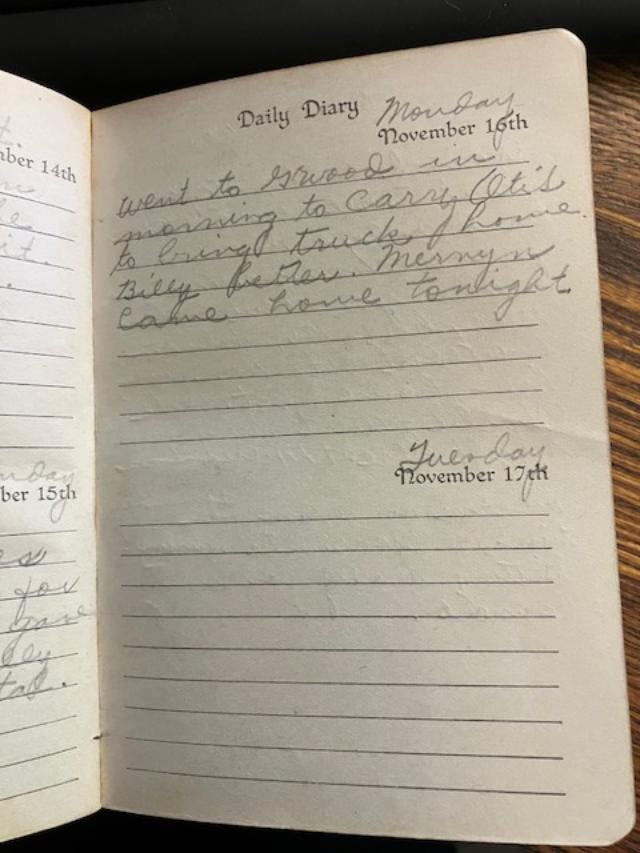 t.
mber 14th
it.
nday
ber 15th
es
for
gave
Daily Diary Monday
November 16th
went to Grwood in
morning to carry Otis
to bring truck home.
Billy better. Mervyn
came home tonight.
Tuesday
November 17th